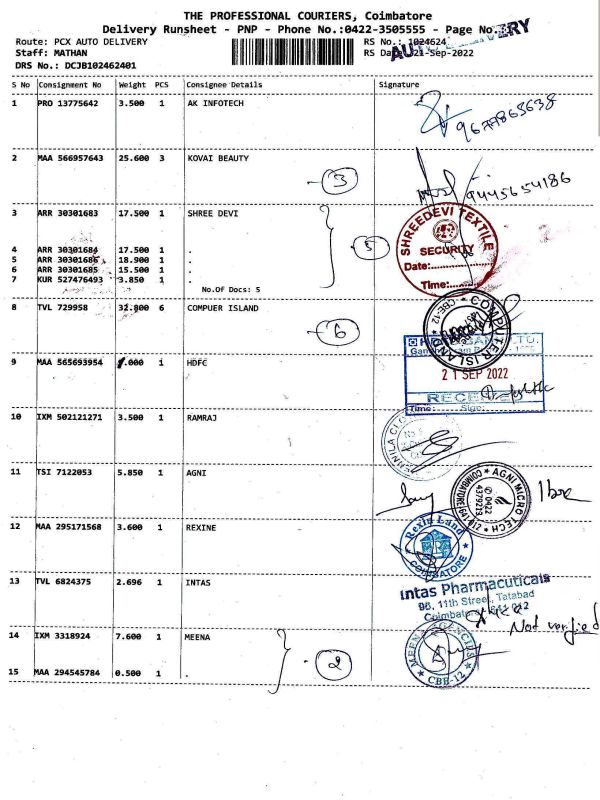 THE PROFESSIONAL COURIERS, Coimbatore
Delivery Runsheet - PNP - Phone No.:0422-3505555 - Page No.
Route: PCX AUTO DELIVERY RS No.: 1024624
Staff: MATHAN RS Date: 21-Sep-2022
DRS No.: DCJB102462401
S No Consignment No Weight PCS Consignee Details Signature
1 PRO 13775642 3.500 1 AK INFOTECH
2 MAA 566957643 25.600 3 KOVAI BEAUTY
3
9445654186
3 ARR 30301683 17.500 1 SHREE DEVI
4 ARR 30301684 17.500 1 .
5 ARR 30301686 18.900 1 .
6 ARR 30301685 15.500 1 .
7 KUR 527476493 3.850 1 .
No.Of Docs: 5
5
SHREEDEVI TEXTILE
SECURITY
Date:
Time:
8 TVL 729958 32.800 6 COMPUER ISLAND
6
COMPUTER ISLAND
CBE-12
9 MAA 565693954 1.000 1 HDFC
21 SEP 2022
RECEIVED
Time: Sign:
10 IXM 502121271 3.500 1 RAMRAJ
11 TSI 7122053 5.850 1 AGNI
AGNI MICRO TECH
COIMBATORE-641 012
0422
4379213
12 MAA 295171568 3.600 1 REXINE
Rexin Land
COIMBATORE
13 TVL 6824375 2.696 1 INTAS
Intas Pharmaceuticals
86, 11th Street, Tatabad
Coimbatore - 641 012
Not verified
14 IXM 3318924 7.600 1 MEENA
2
MEENA AGENCIES
CBE-12
15 MAA 294545784 0.500 1 .